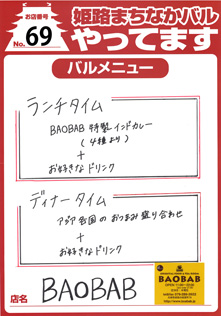 お店番号
No.69
姫路まちなかバル
やってます
バルメニュー
ランチタイム
BAOBAB 特製インドカレー
(4種より)
+
お好きなドリンク
ディナータイム
アジア各国のおつまみ盛り合わせ
+
お好きなドリンク
店名 BAOBAB
BAOBAB